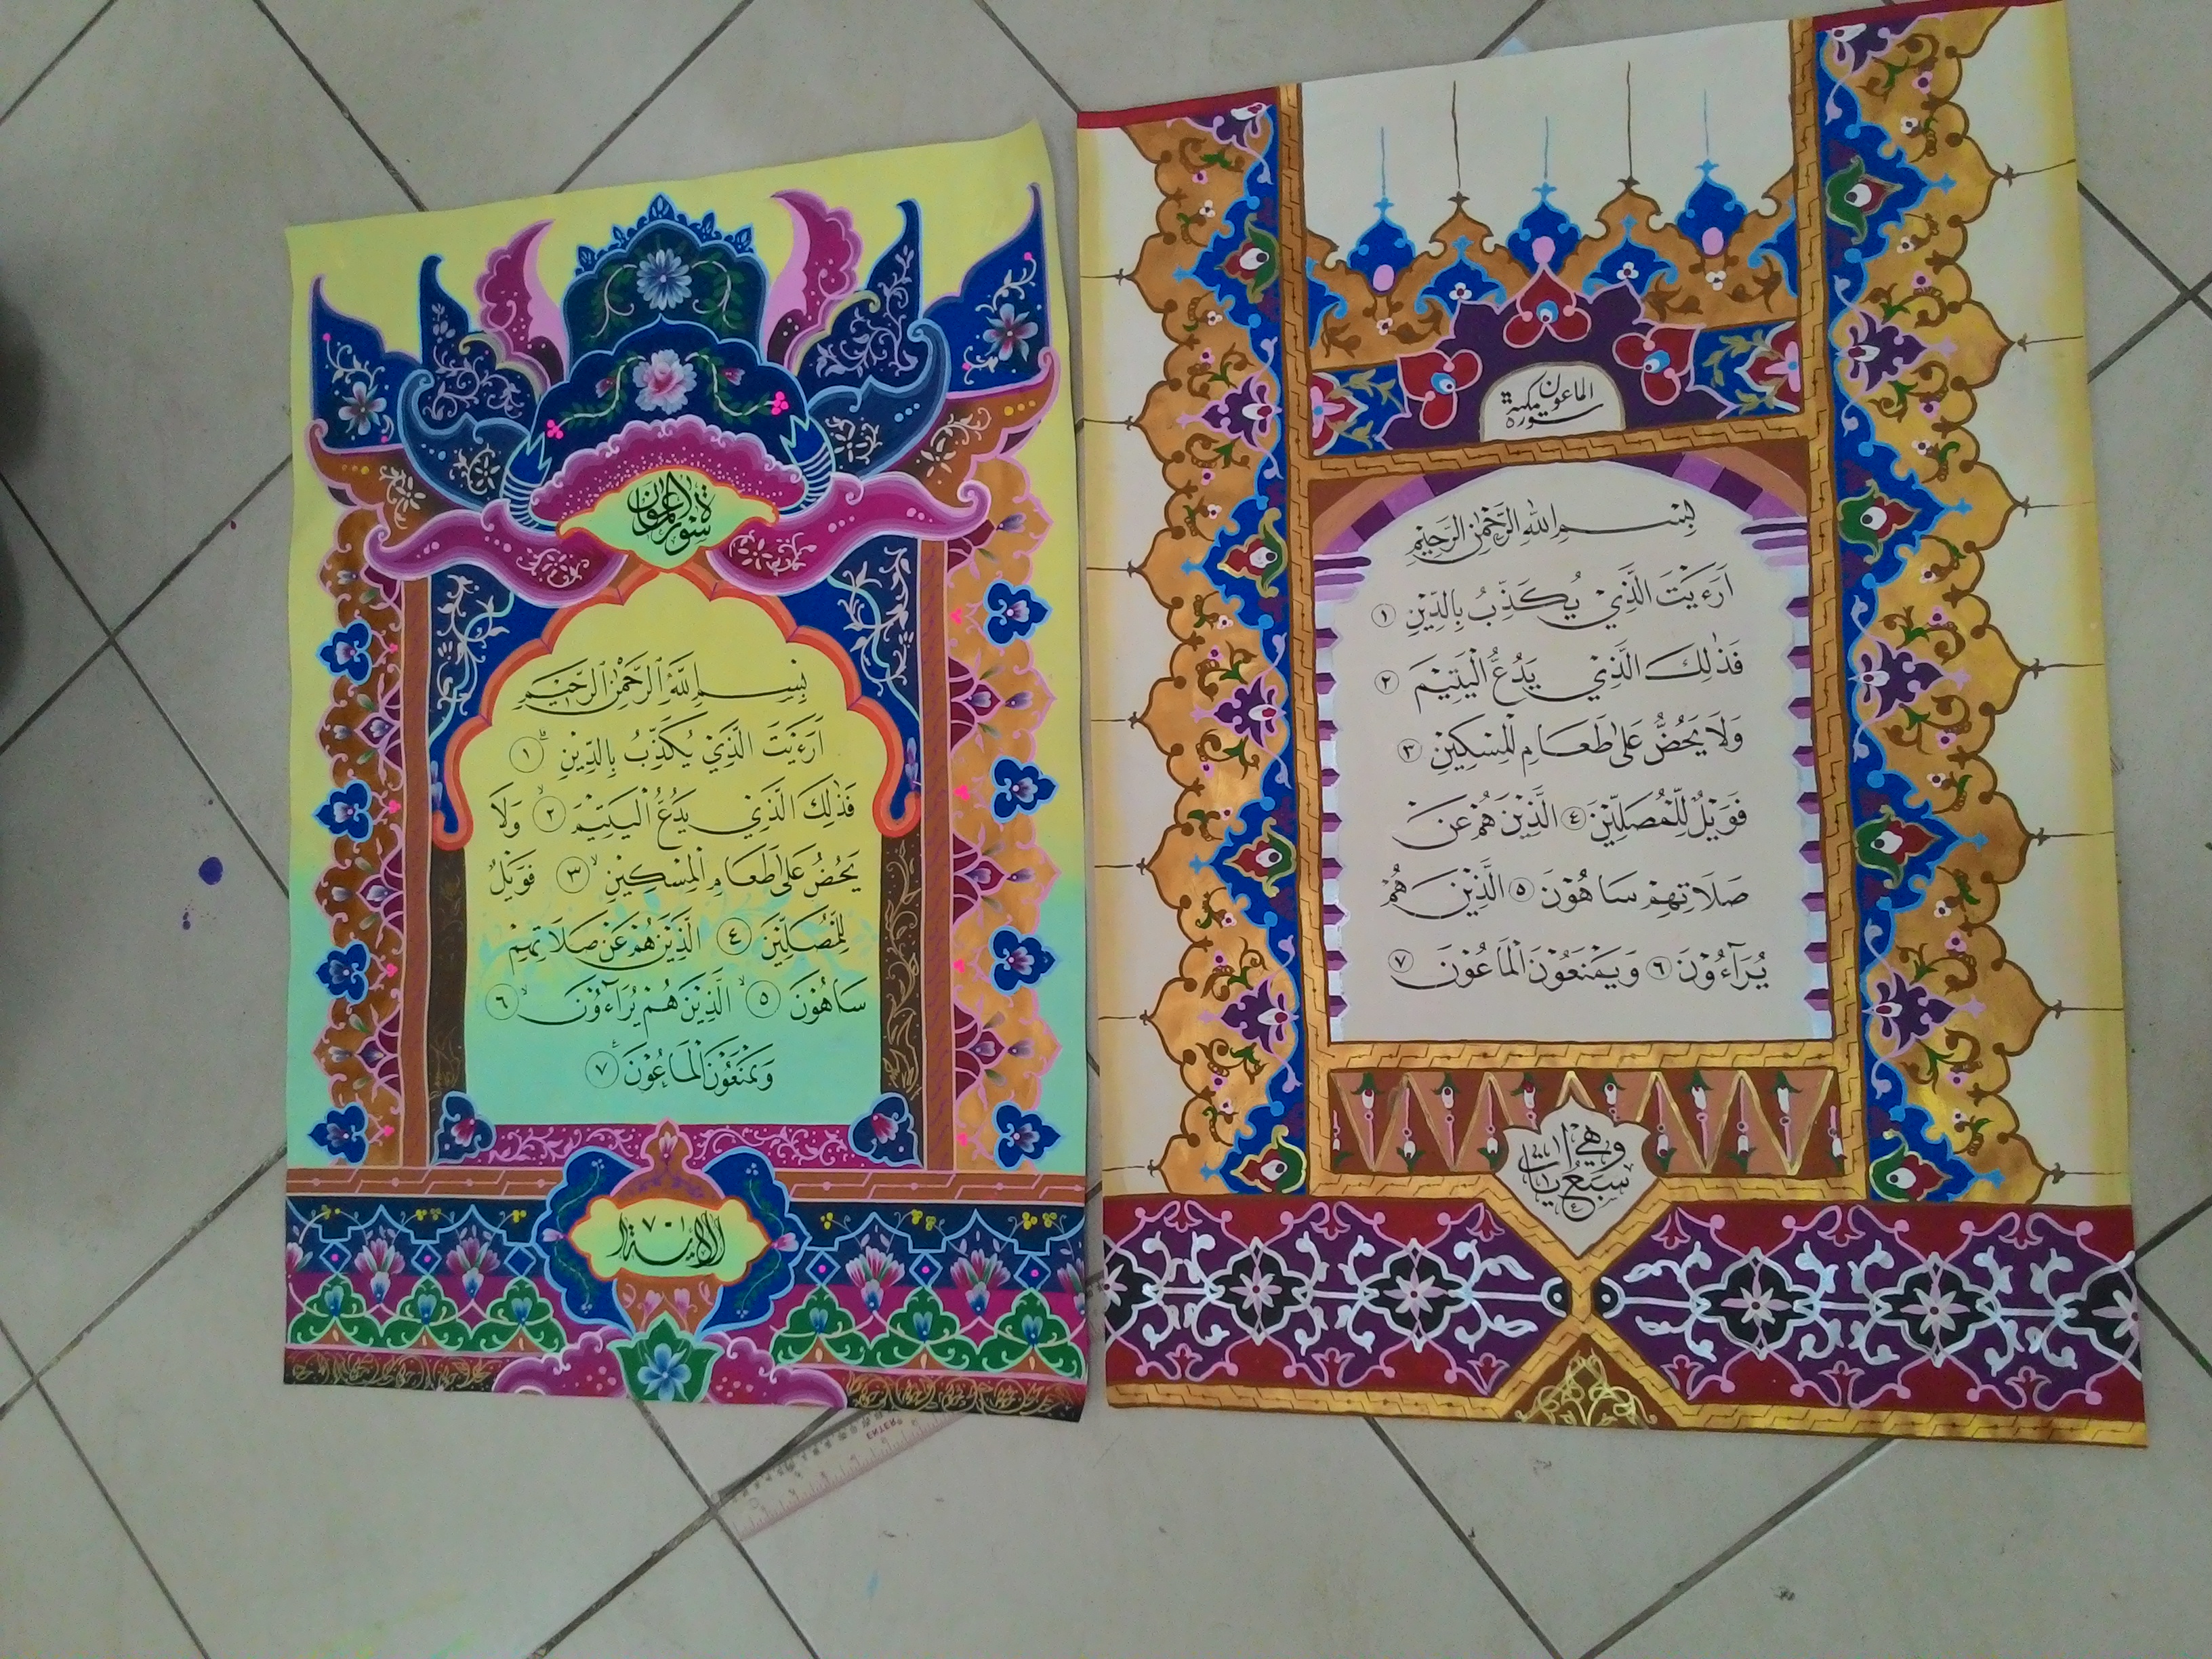 سورة الماعون
بِسْمِ اللَّهِ الرَّحْمٰنِ الرَّحِيْمِ
اَرَءَيْتَ الَّذِيْ يُكَذِّبُ بِالدِّيْنِ ١
فَذٰلِكَ الَّذِيْ يَدُعُّ الْيَتِيْمَ ٢ وَلَا
يَحُضُّ عَلٰى طَعَامِ الْمِسْكِيْنِ ٣ فَوَيْلٌ
لِلْمُصَلِّيْنَ ٤ الَّذِيْنَ هُمْ عَنْ صَلَاتِهِمْ
سَاهُوْنَ ٥ الَّذِيْنَ هُمْ يُرَآءُوْنَ ٦
وَيَمْنَعُوْنَ الْمَاعُوْنَ ٧
الآية ١-٧
الماعون
سورة مكية
بِسْمِ اللهِ الرَّحْمٰنِ الرَّحِيْمِ
اَرَءَيْتَ الَّذِيْ يُكَذِّبُ بِالدِّيْنِ ١
فَذٰلِكَ الَّذِيْ يَدُعُّ الْيَتِيْمَ ٢
وَلَا يَحُضُّ عَلٰى طَعَامِ الْمِسْكِيْنِ ٣
فَوَيْلٌ لِّلْمُصَلِّيْنَ ٤ الَّذِيْنَ هُمْ عَنْ
صَلَاتِهِمْ سَاهُوْنَ ٥ الَّذِيْنَ هُمْ
يُرَآءُوْنَ ٦ وَيَمْنَعُوْنَ الْمَاعُوْنَ ٧
وهي
سبع آيات
ENTER